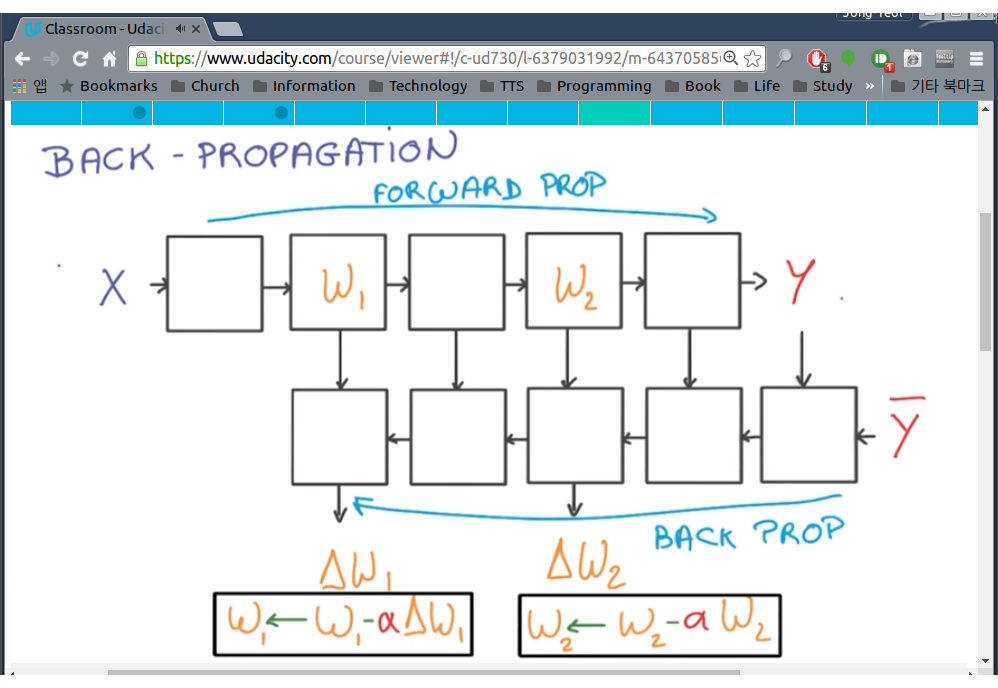 Classroom - Udaci
https://www.udacity.com/course/viewer#!/c-ud730/l-6379031992/m-64370585
6
1
앱 Bookmarks Church Information Technology TTS Programming Book Life Study » 기타 북마크
BACK - PROPAGATION
FORWARD PROP
X W₁ W₂ Y
Y̅
BACK PROP
ΔW₁ ΔW₂
W₁ ← W₁ - α ΔW₁ W₂ ← W₂ - α W₂